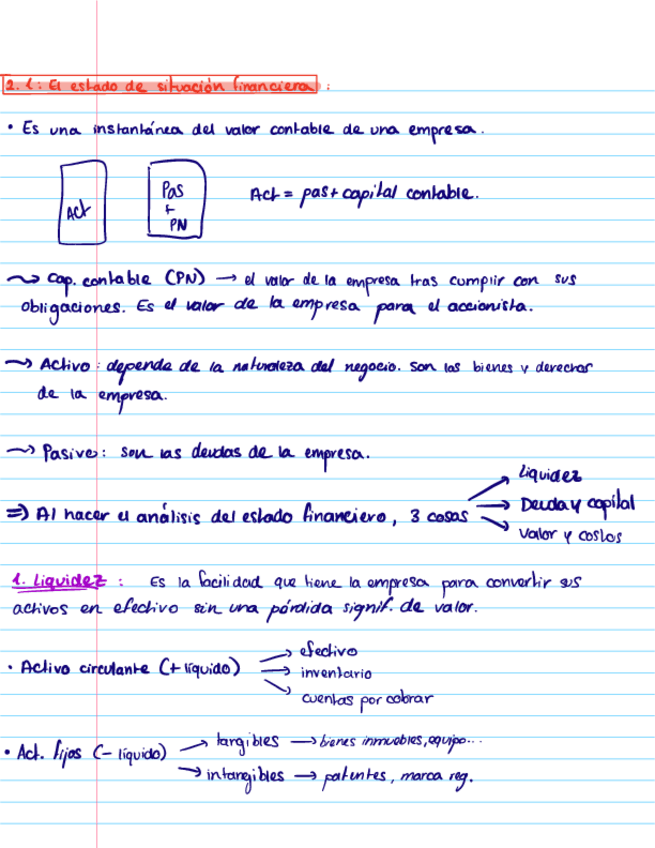 2.1: El estado de situación financiera :
• Es una instantánea del valor contable de una empresa.
Act
Pas
+
PN
Act = pas + capital contable.
Cap. contable (PN) → el valor de la empresa tras cumplir con sus
obligaciones. Es el valor de la empresa para el accionista.
Activo: depende de la naturaleza del negocio. Son las bienes y derechos
de la empresa.
Pasivo: son las deudas de la empresa.
⇒ Al hacer el análisis del estado financiero, 3 cosas
→ Liquidez
→ Deuda y capital
→ Valor y costos
1. Liquidez : Es la facilidad que tiene la empresa para convertir sus
activos en efectivo sin una pérdida signif. de valor.
• Activo circulante (+ líquido)
→ efectivo
→ inventario
→ cuentas por cobrar
• Act. fijos (- líquido)
→ tangibles → bienes inmuebles, equipo...
→ intangibles → patentes, marca reg.